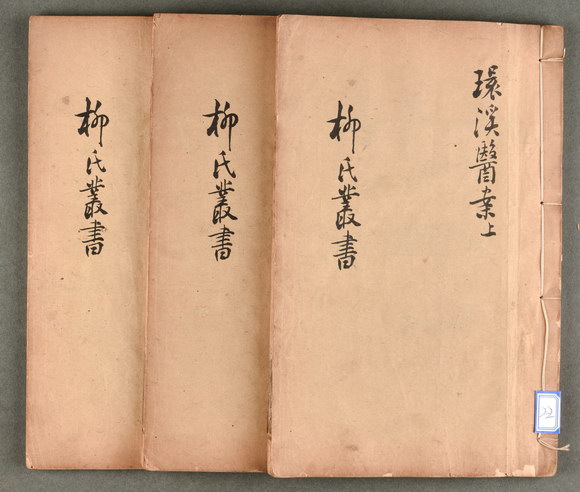 環溪醫案上
柳氏叢書
柳氏叢書
柳氏叢書
22